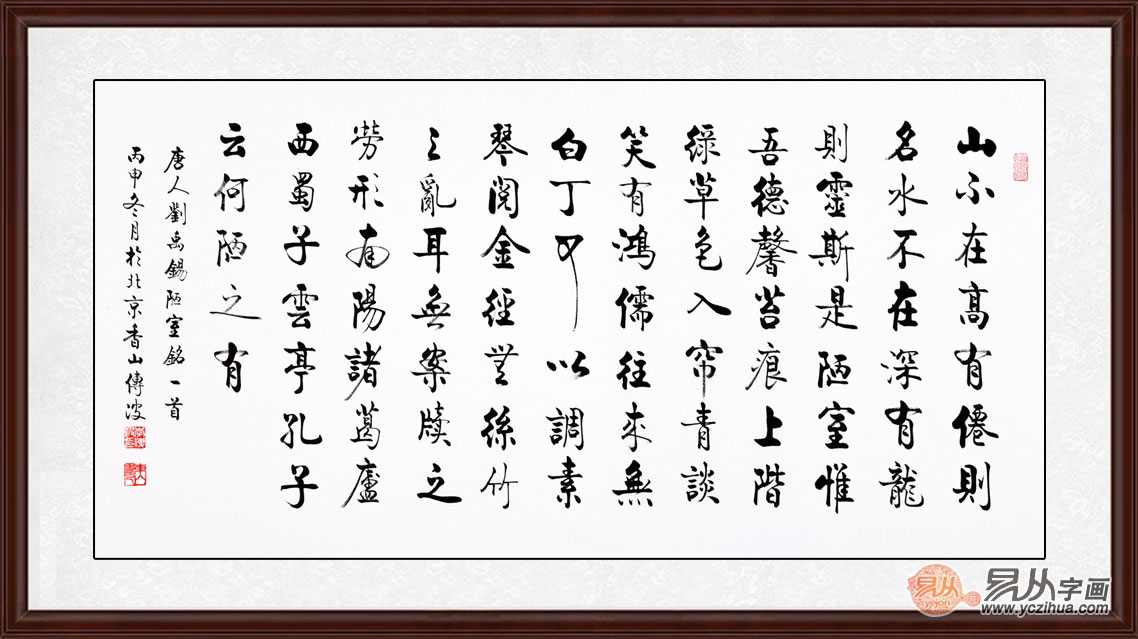 山不在高有僊則
名水不在深有龍
則靈斯是陋室惟
吾德馨苔痕上階
綠草色入帘青談
笑有鴻儒往來無
白丁可以調素
琴閱金經無絲竹
之亂耳無案牘之
勞形南陽諸葛廬
西蜀子雲亭孔子
云何陋之有
唐人劉禹錫陋室銘一首
丙申冬月於北京香山傳波
易从
yczihua.com
易从字画
www.yczihua.com